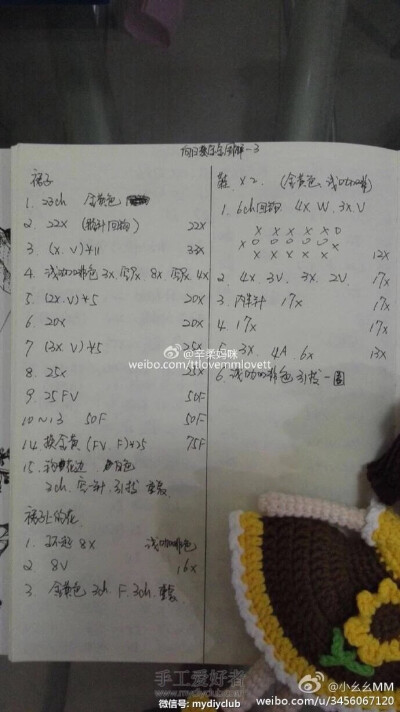 裙子
1. 23ch 金黄色
2. 22X 22X
3. (X.V)*11 33X
4. 浅咖啡色 3X. 8X 4X
5. (2X.V)*5 20X
6. 20X 20X
7 (3X.V)*5 25X
8. 25X 25X
9. 25FV 50F
10~13 50F 50F
14. 换金黄 (FV.F)*25 75F
15. 花边 白色
2ch. 空一针. 引拔 重复
裙子上的花
1. 环起 8X 浅咖啡色
2. 8V 16X
3. 金黄色 3ch F. 3ch. 重复
鞋 X2. (金黄色、浅咖啡)
1. 6ch 回钩 4X. W. 3X. V
X X X X X O
X O O O O O X
X X X X X
2. 4X. 3V. 3X. 2V. 17X
3. 17X 17X
4. 17X 17X
5. 3X. 4A. 6X 13X
6. 浅咖啡色 引拔一圈
@辛柔妈咪
weibo.com/ttlovemmlovett
手工爱好者
www.mydiyclub
微信号: mydiyclub
@小幺幺MM
weibo.com/u/3456067120